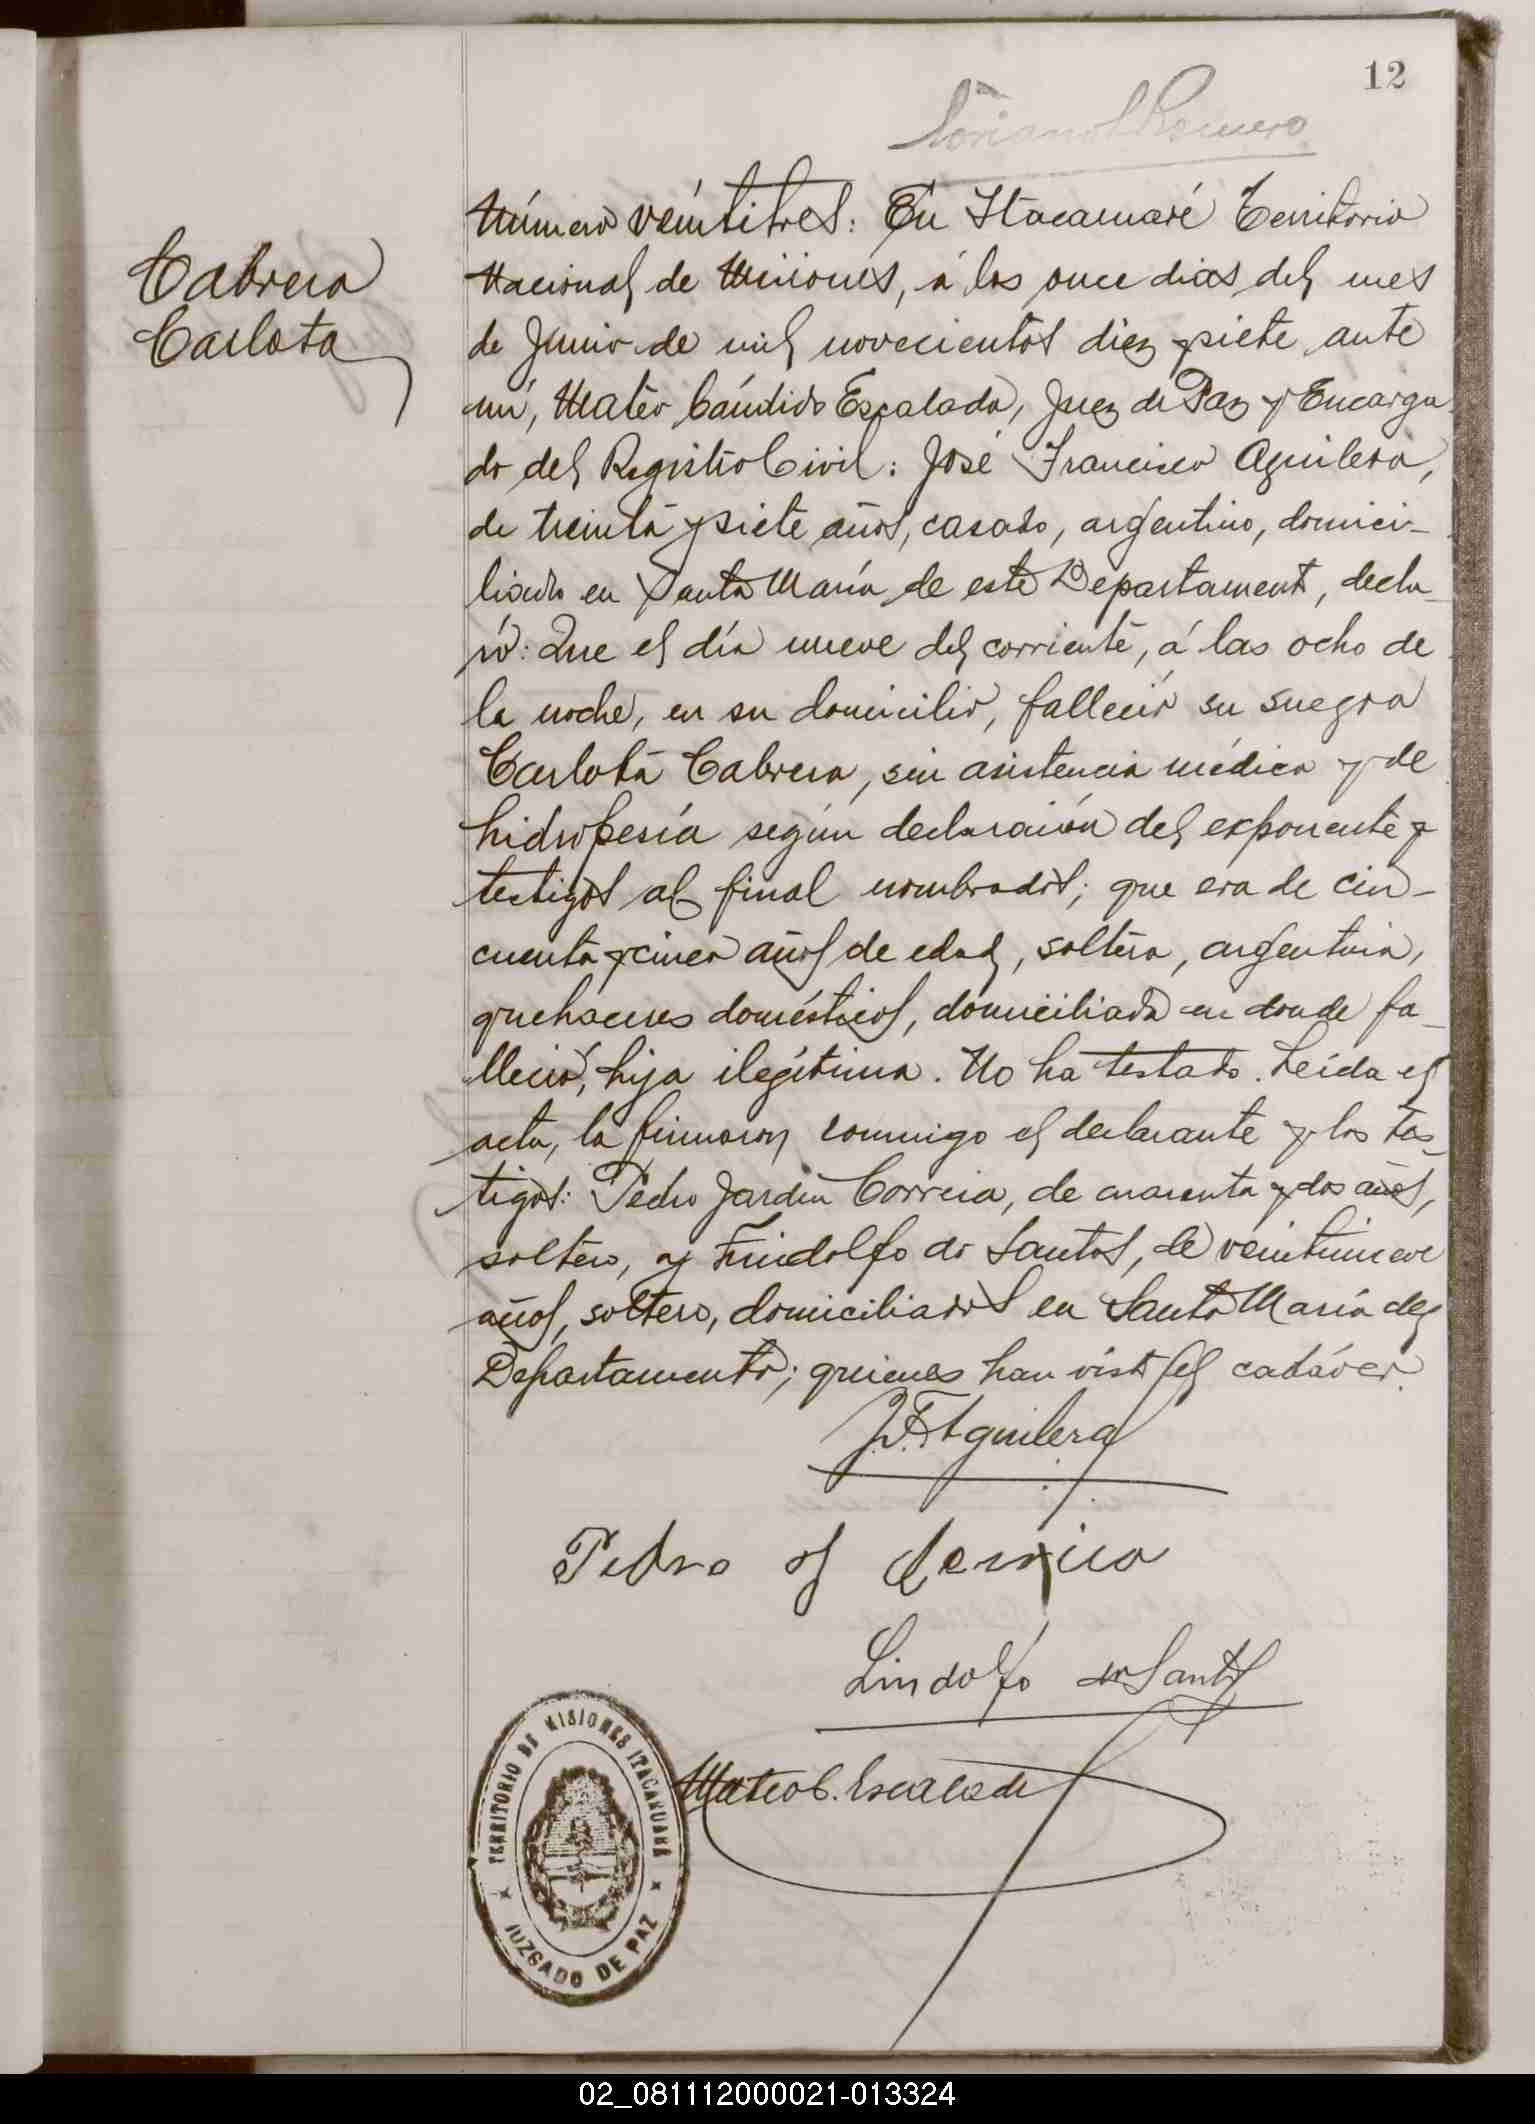 12
Soriano Romero
Cabrera
Carlota
Número veintitres: En Itacaruaré Territorio
Nacional de Misiones, á los once dias del mes
de Junio de mil novecientos diez y siete ante
mi, Mateo Cándido Escalada, Juez de Paz y Encarga
do del Registro Civil: José Francisco Aguilera,
de treinta y siete años, casado, argentino, domici-
liado en Santa María de este Departament, decla
ró: Que el día nueve del corriente, á las ocho de
la noche, en su domicilio, falleció su suegra
Carlota Cabrera, sin asistencia médica y de
hidropesía según declaración del exponente y
testigos al final nombrados; que era de cin-
cuenta y cinco años de edad, soltera, argentina,
quehaceres domésticos, domiciliada en donde fa-
lleció, hija ilegítima. No ha testado. Leída el
acta, la firmaron conmigo el declarante y los tes
tigos: Pedro Jardin Correia, de cuarenta y dos años,
soltero, y Lindolfo do Santos, de veintinueve
años, soltero, domiciliados en Santa María del
Departamento; quienes han visto el cadáver.
J. F. Aguilera
Pedro J Correia
Lindolfo do Santos
Mateo C. Escalada
TERRITORIO DE MISIONES ITACARUARÉ
JUZGADO DE PAZ
02_081112000021-013324